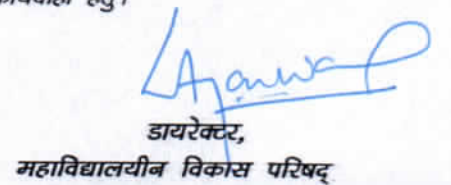 हेतु।
डायरेक्टर,
महाविद्यालयीन विकास परिषद्